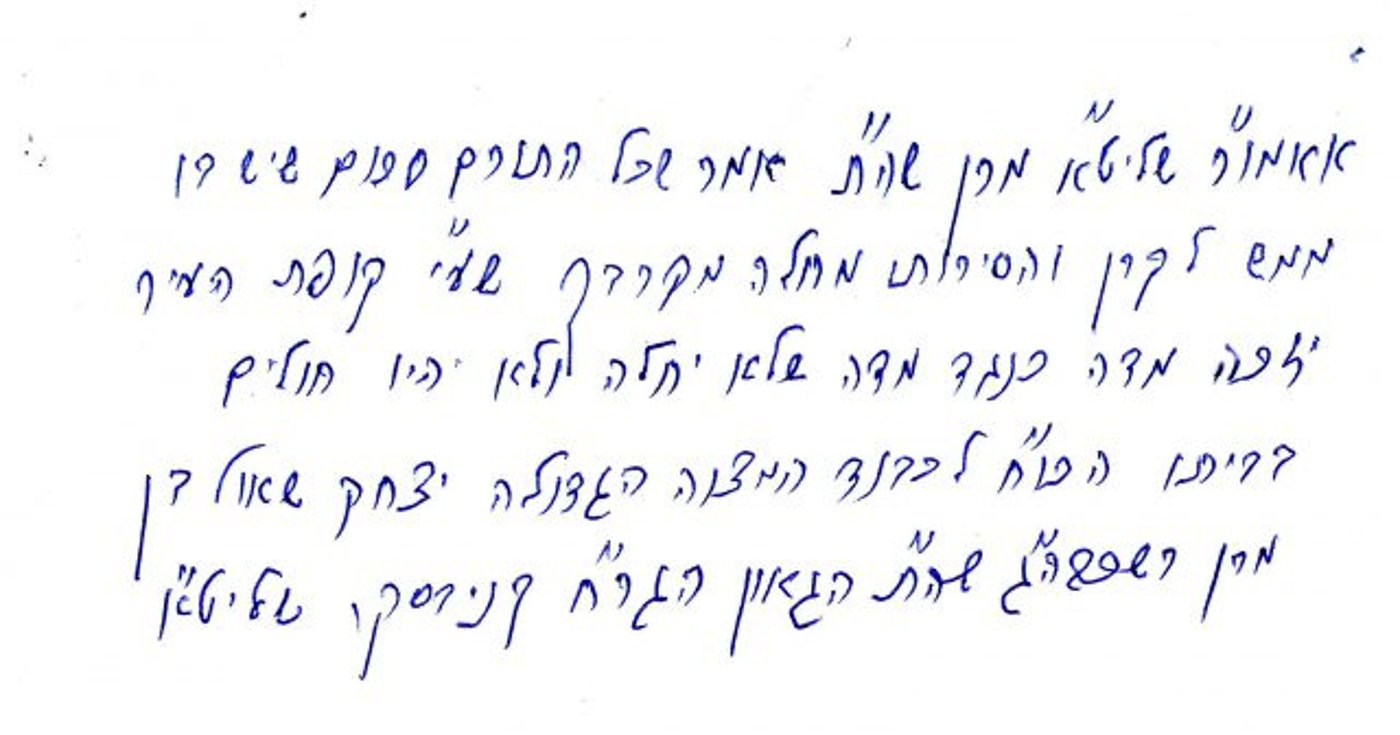 אאמו"ר שליט"א מרן שה"ת אמר שכל התורם סכום שיש בו
ממש לקרן והסירותי מחלה מקרבך שע"י קופת העיר
יזכה מדה כנגד מדה שלא יחלה ולא יהיו חולים
בביתו הכו"ח לכבוד המצוה הגדולה יצחק שאול בן
מרן שה"ת הגאון הגר"ח קניבסקי שליט"א